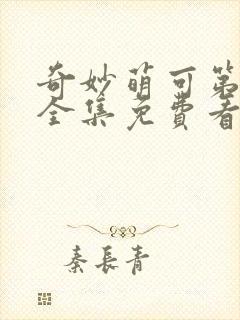 奇妙萌可第
全集免费看
秦長青